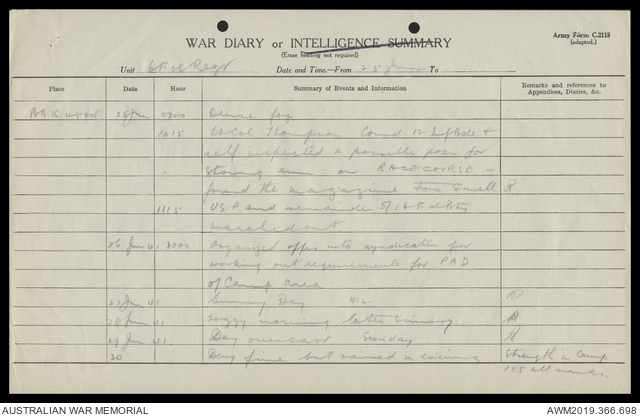 Army Form C.2118
(adapted.)
WAR DIARY or INTELLIGENCE SUMMARY
(Erase heading not required)
Unit 6 Fd Regt Date and Time.—From 25 Jun To
Place Date Hour Summary of Events and Information Remarks and references to Appendices, Diaries, &c.
25 Jun 0700 Dense fog
1015 Lt Col Thompson Comd Bde &
self inspected a possible posn for
storing amn on RACECOURSE –
found the magazine too small R
1115 and remainder of 16 Fd Bty
marched out
26 Jun 41 2000 Organized offrs into syndicates for
working out requirements for PAD
of Camp area
27 Jun 41 Sunny Day NIL R
28 Jun 41 Foggy morning later sunny. R
29 Jun 41. Day overcast Sunday R
30 Day fine but rained in evening Strength in Camp
105 all ranks.
AUSTRALIAN WAR MEMORIAL AWM2019.366.698